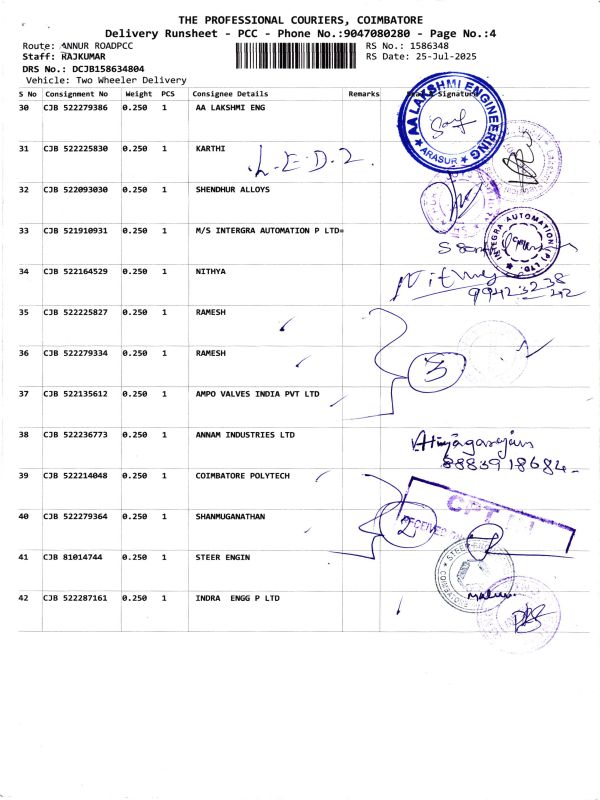 THE PROFESSIONAL COURIERS, COIMBATORE
Delivery Runsheet - PCC - Phone No.:9047080280 - Page No.:4
Route: ANNUR ROADPCC RS No.: 1586348
Staff: RAJKUMAR RS Date: 25-Jul-2025
DRS No.: DCJB158634804
Vehicle: Two Wheeler Delivery
S No Consignment No Weight PCS Consignee Details Remarks Signature
30 CJB 522279386 0.250 1 AA LAKSHMI ENG
AA LAKSHMI ENGINEERING
★ ARASUR ★
31 CJB 522225830 0.250 1 KARTHI
L.E.D.2.
32 CJB 522093030 0.250 1 SHENDHUR ALLOYS
33 CJB 521910931 0.250 1 M/S INTERGRA AUTOMATION P LTD=
INTEGRA AUTOMATION (P) LTD. ★
34 CJB 522164529 0.250 1 NITHYA
35 CJB 522225827 0.250 1 RAMESH
36 CJB 522279334 0.250 1 RAMESH
3
37 CJB 522135612 0.250 1 AMPO VALVES INDIA PVT LTD
38 CJB 522236773 0.250 1 ANNAM INDUSTRIES LTD
8883918684
39 CJB 522214048 0.250 1 COIMBATORE POLYTECH
CPT
40 CJB 522279364 0.250 1 SHANMUGANATHAN
RECEIVED
2
41 CJB 81014744 0.250 1 STEER ENGIN
42 CJB 522287161 0.250 1 INDRA ENGG P LTD